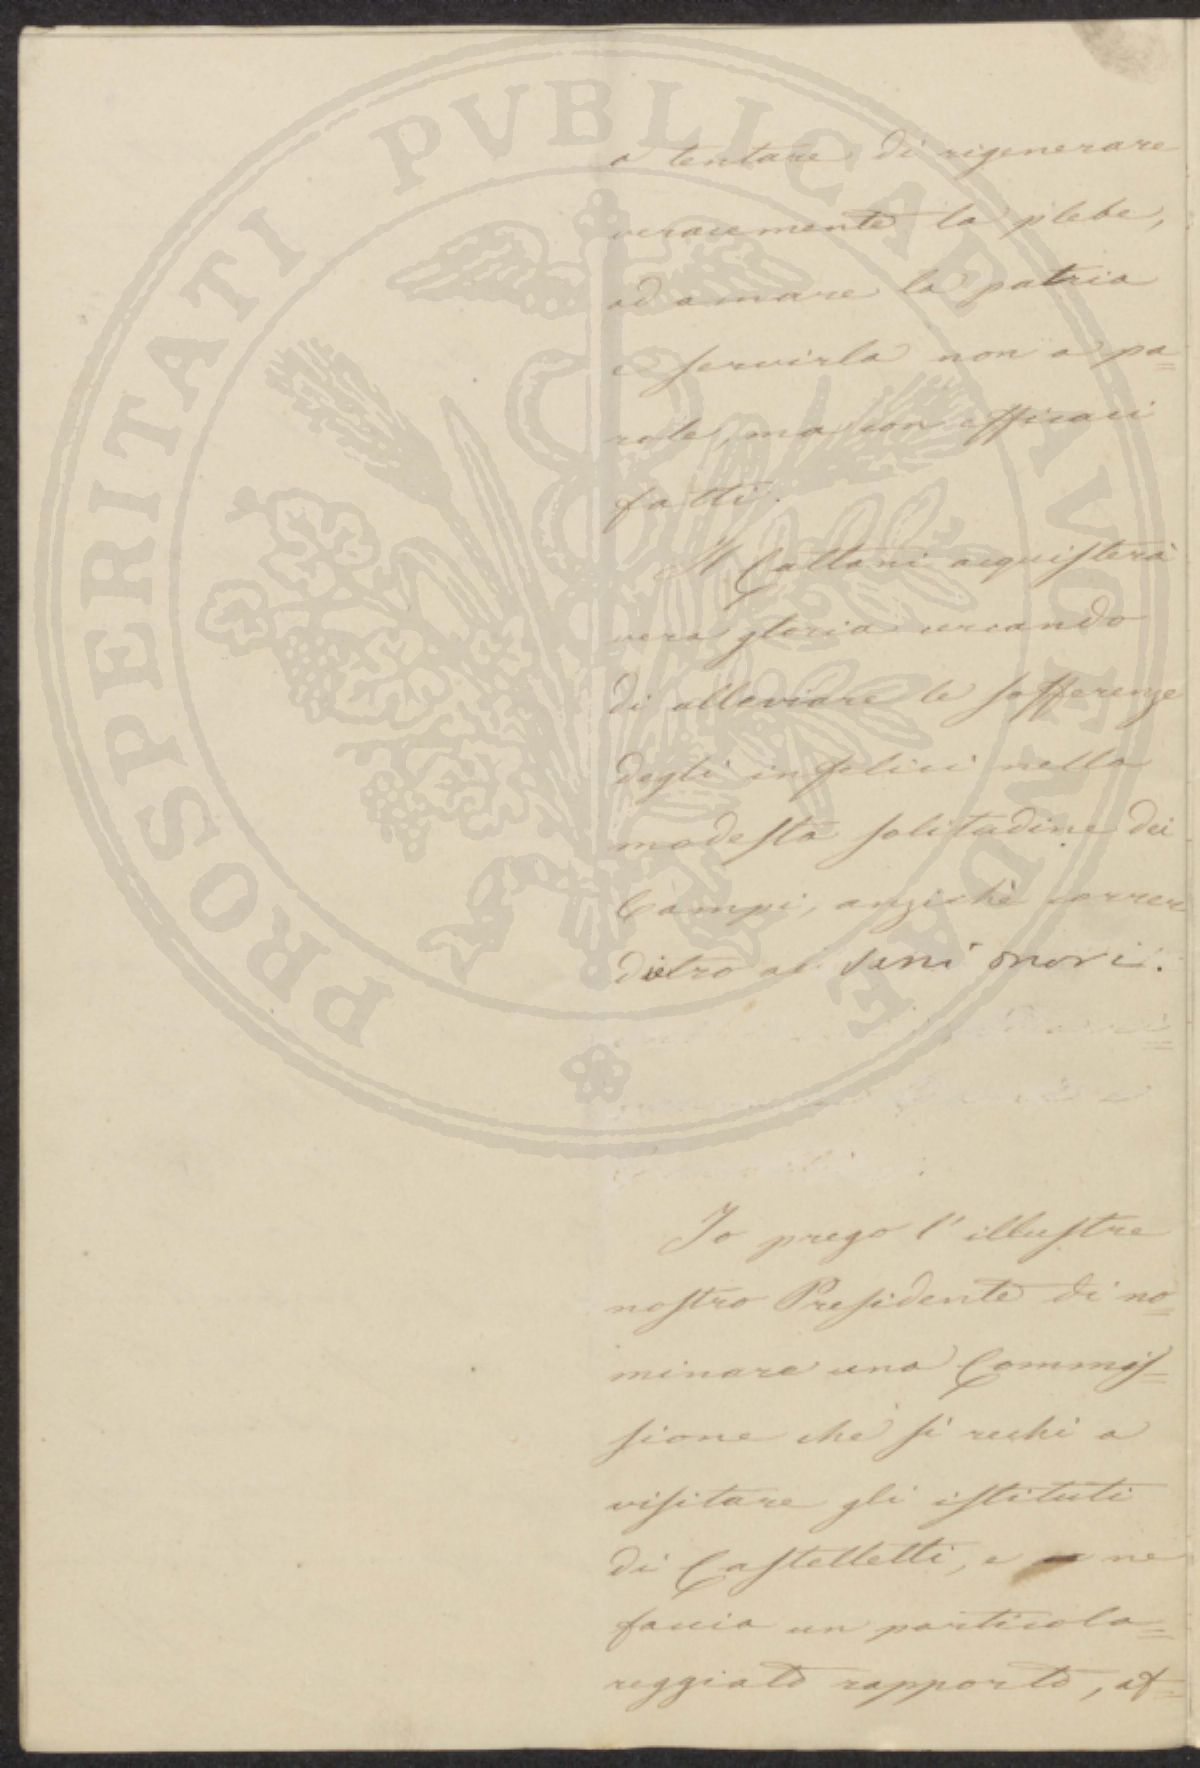 PROSPERITATI PVBLICAE AVGENDAE
a tentare di rigenerare
veracemente la plebe,
ad amare la patria
e servirla non a pa=
role, ma con efficaci
fatti.
Il Cattani acquisterà
vera gloria cercando
di alleviare le sofferenze
degli infelici nella
modesta solitudine dei
Campi, anzichè correr
dietro ai
Io prego l'illustre
nostro Presidente di no=
minare una Commis=
sione che si rechi a
visitare gli istituti
di Castelletti, e ne
faccia un particola=
reggiato rapporto, af=